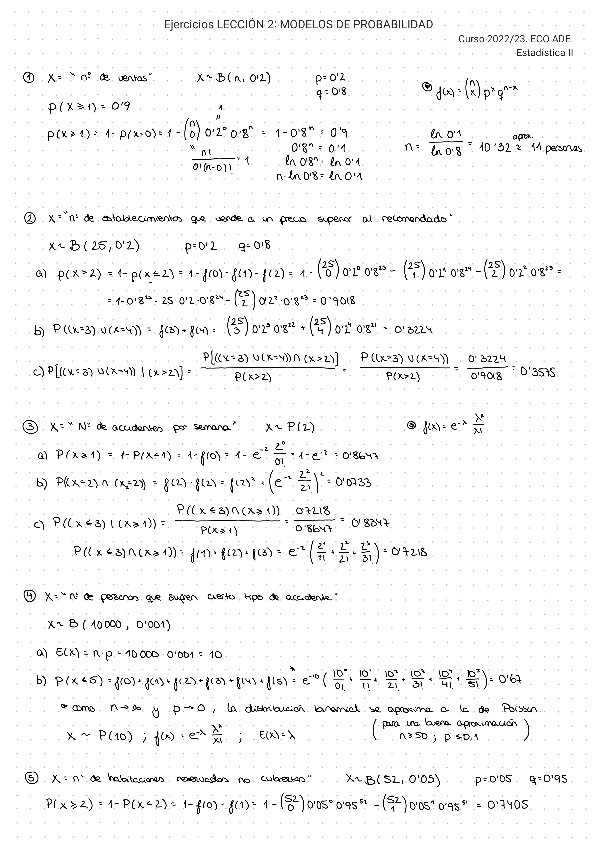 Ejercicios LECCIÓN 2: MODELOS DE PROBABILIDAD
Curso 2022/23. ECO ADE.
Estadística II
① X = "nº de ventas" X ~ B(n, 0'2) p = 0'2
q = 0'8
* f(x) = (n x) p^x q^(n-x)
P(X ≥ 1) = 0'9
P(X ≥ 1) = 1 - P(X=0) = 1 - (n 0) 0'2^0 0'8^n = 1 - 0'8^n = 0'9
n! / 0!(n-0)! = 1
0'8^n = 0'1
ln 0'8^n = ln 0'1
n · ln 0'8 = ln 0'1
n = ln 0'1 / ln 0'8 = 10'32 ≈ 11 personas
aprox.
② X = "nº de establecimientos que vende a un precio superior al recomendado"
X ~ B(25, 0'2) p = 0'2 q = 0'8
a) P(X > 2) = 1 - P(X ≤ 2) = 1 - f(0) - f(1) - f(2) = 1 - (25 0) 0'2^0 0'8^25 - (25 1) 0'2^1 0'8^24 - (25 2) 0'2^2 0'8^23 =
= 1 - 0'8^25 - 25 · 0'2 · 0'8^24 - (25 2) 0'2^2 · 0'8^23 = 0'9018
b) P((X=3) ∪ (X=4)) = f(3) + f(4) = (25 3) 0'2^3 0'8^22 + (25 4) 0'2^4 0'8^21 = 0'3224
c) P[((X=3) ∪ (X=4)) | (X>2)] = P[((X=3) ∪ (X=4)) ∩ (X>2)] / P(X>2) = P((X=3) ∪ (X=4)) / P(X>2) = 0'3224 / 0'9018 = 0'3575
③ X = "Nº de accidentes por semana" X ~ P(2) * f(x) = e^-λ λ^x / x!
a) P(X ≥ 1) = 1 - P(X < 1) = 1 - f(0) = 1 - e^-2 2^0 / 0! = 1 - e^-2 = 0'8647
b) P((X=2) ∩ (X=2)) = f(2) · f(2) = f(2)^2 = (e^-2 2^2 / 2!)^2 = 0'0733
c) P((X ≤ 3) | (X ≥ 1)) = P((X ≤ 3) ∩ (X ≥ 1)) / P(X ≥ 1) = 0'7218 / 0'8647 = 0'8347
P((X ≤ 3) ∩ (X ≥ 1)) = f(1) + f(2) + f(3) = e^-2 (2^1 / 1! + 2^2 / 2! + 2^3 / 3!) = 0'7218
④ X = "nº de personas que sufren cierto tipo de accidente"
X ~ B(10000, 0'001)
a) E(X) = n · p = 10000 · 0'001 = 10
b) P(X ≤ 5) = f(0) + f(1) + f(2) + f(3) + f(4) + f(5) =* e^-10 (10^0 / 0! + 10^1 / 1! + 10^2 / 2! + 10^3 / 3! + 10^4 / 4! + 10^5 / 5!) = 0'67
* como n → ∞ y p → 0, la distribución binomial se aproxima a la de Poisson
X ~ P(10) ; f(x) = e^-λ λ^x / x! ; E(X) = λ (para una buena aproximación n ≥ 50 ; p ≤ 0,1)
⑤ X = nº de habitaciones reservadas no cubiertas" X ~ B(52, 0'05) p = 0'05 q = 0'95
P(X ≥ 2) = 1 - P(X < 2) = 1 - f(0) - f(1) = 1 - (52 0) 0'05^0 0'95^52 - (52 1) 0'05^1 0'95^51 = 0'7405